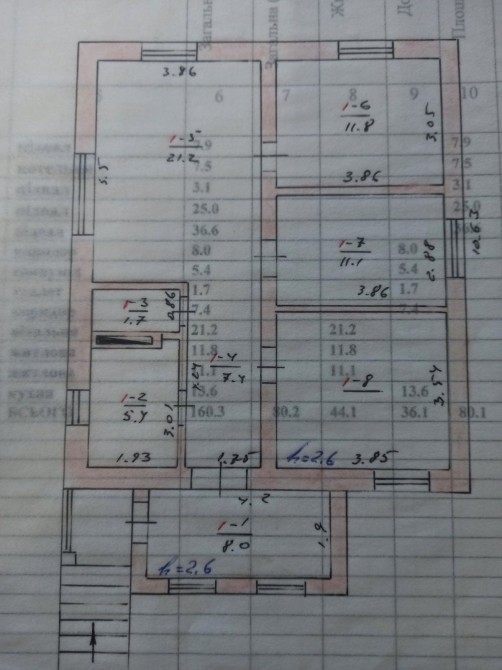 6 7 8 9 10
3.86
1-5
21.2
5.5
1-6
11.8
3.05
3.86
7.9
7.5
3.1
25.0
36.6
8.0
5.4
1.7
7.4
21.2
11.8
11.1
13.6
160.3 80.2 44.1 36.1 80.1
1-7
11.1
2.88
3.86
10.63
8.0
5.4
1.7
7.4
21.2
11.8
11.1
13.6
7.9
7.5
3.1
25.0
1-3
1.7
0.86
1-4
7.4
1-2
5.4
3.01
1.93
1.75
1-8
3.54
h=2.6 3.85
4.2
1-1
8.0
1.9
h=2.6